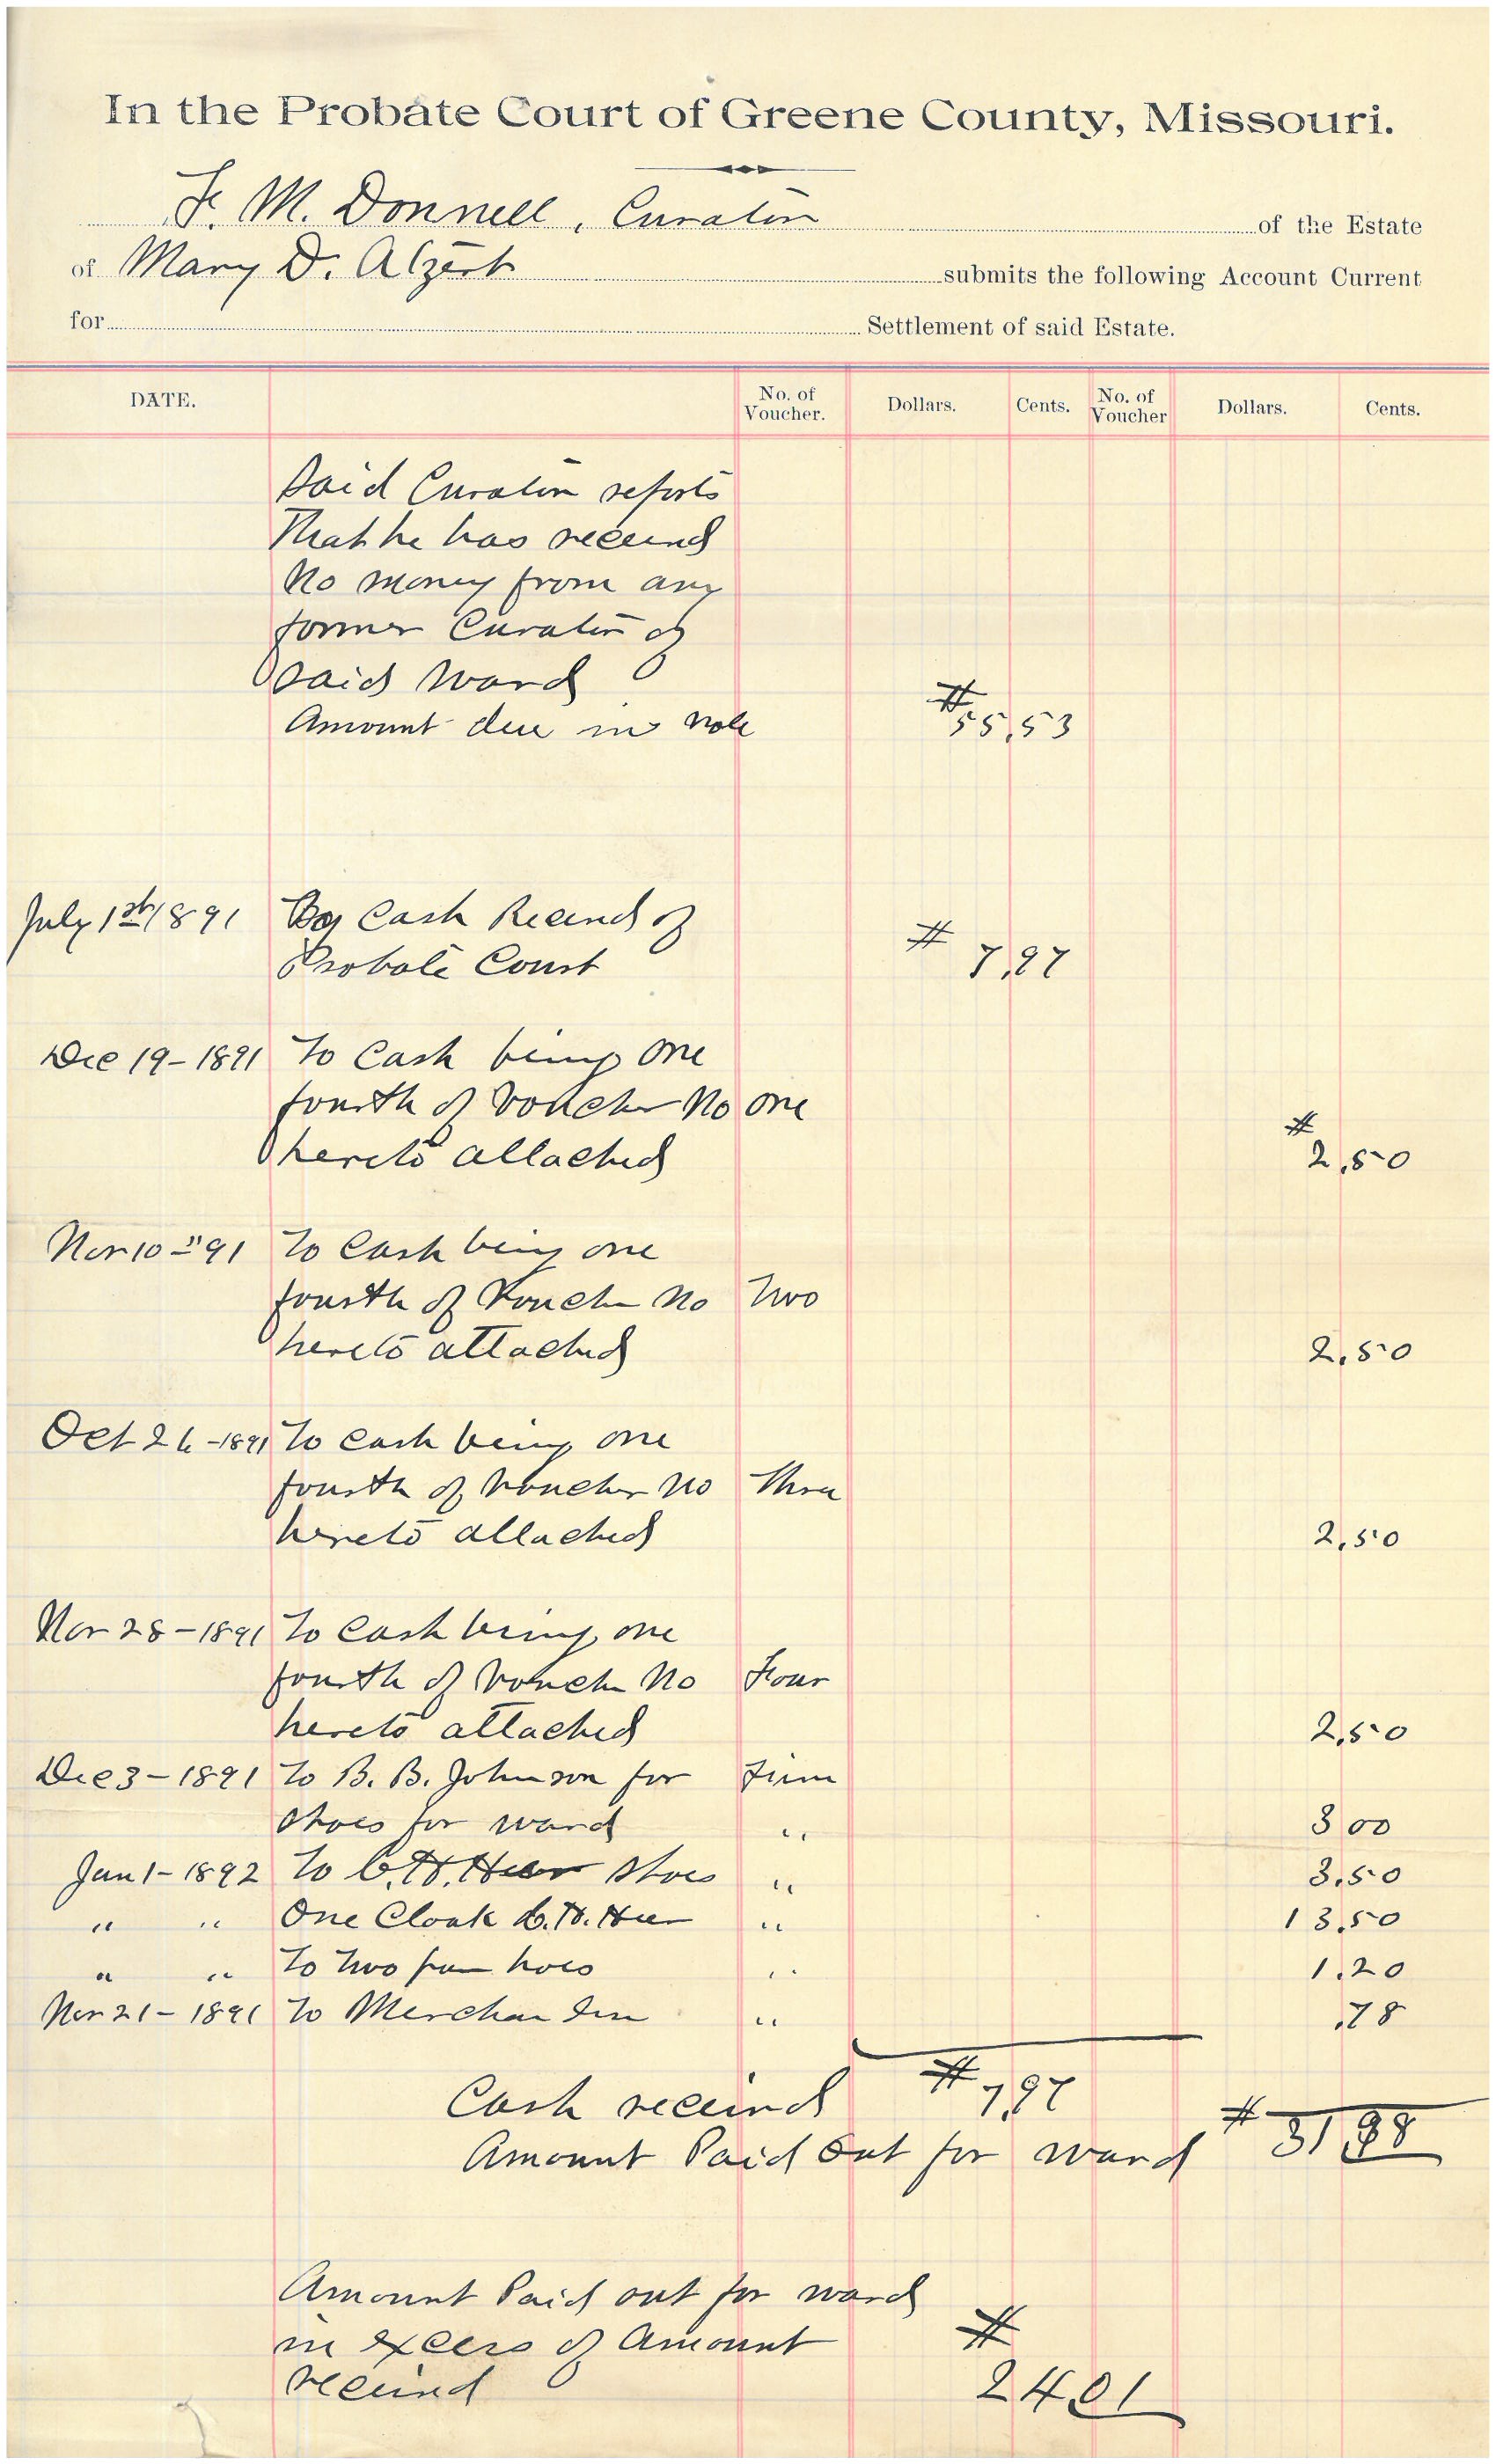 In the Probate Court of Greene County, Missouri.
F. M. Donnell, Curator of the Estate
of Mary D. Alzert submits the following Account Current
for Settlement of said Estate.
DATE. No. of Voucher. Dollars. Cents. No. of Voucher Dollars. Cents.
Said Curator reports
That he has received
No money from any
former Curator of
said Ward
Amount due in note # 55,53
July 1st/1891 By Cash Received of
Probate Court # 7,97
Dec 19-1891 To Cash being one
fourth of Voucher No one
hereto attached # 2,50
Nov 10 " 91 To Cash being one
fourth of Voucher No Two
hereto attached 2,50
Oct 26-1891 To Cash being one
fourth of Voucher No Three
hereto attached 2,50
Nov 28-1891 To Cash being one
fourth of Voucher No Four
hereto attached 2,50
Dec 3-1891 To B. B. Johnson for
Shoes for ward " 3 00
Jan 1-1892 To C. H. Heer Shoes " 3,50
" " One Cloak C. H. Heer " 13,50
" " To Two pair hose " 1,20
Nov 21-1891 To Merchandise " ,78
Cash received # 7,97
Amount Paid Out for ward # 31,98
Amount Paid out for ward
in excess of Amount #
received 24,01